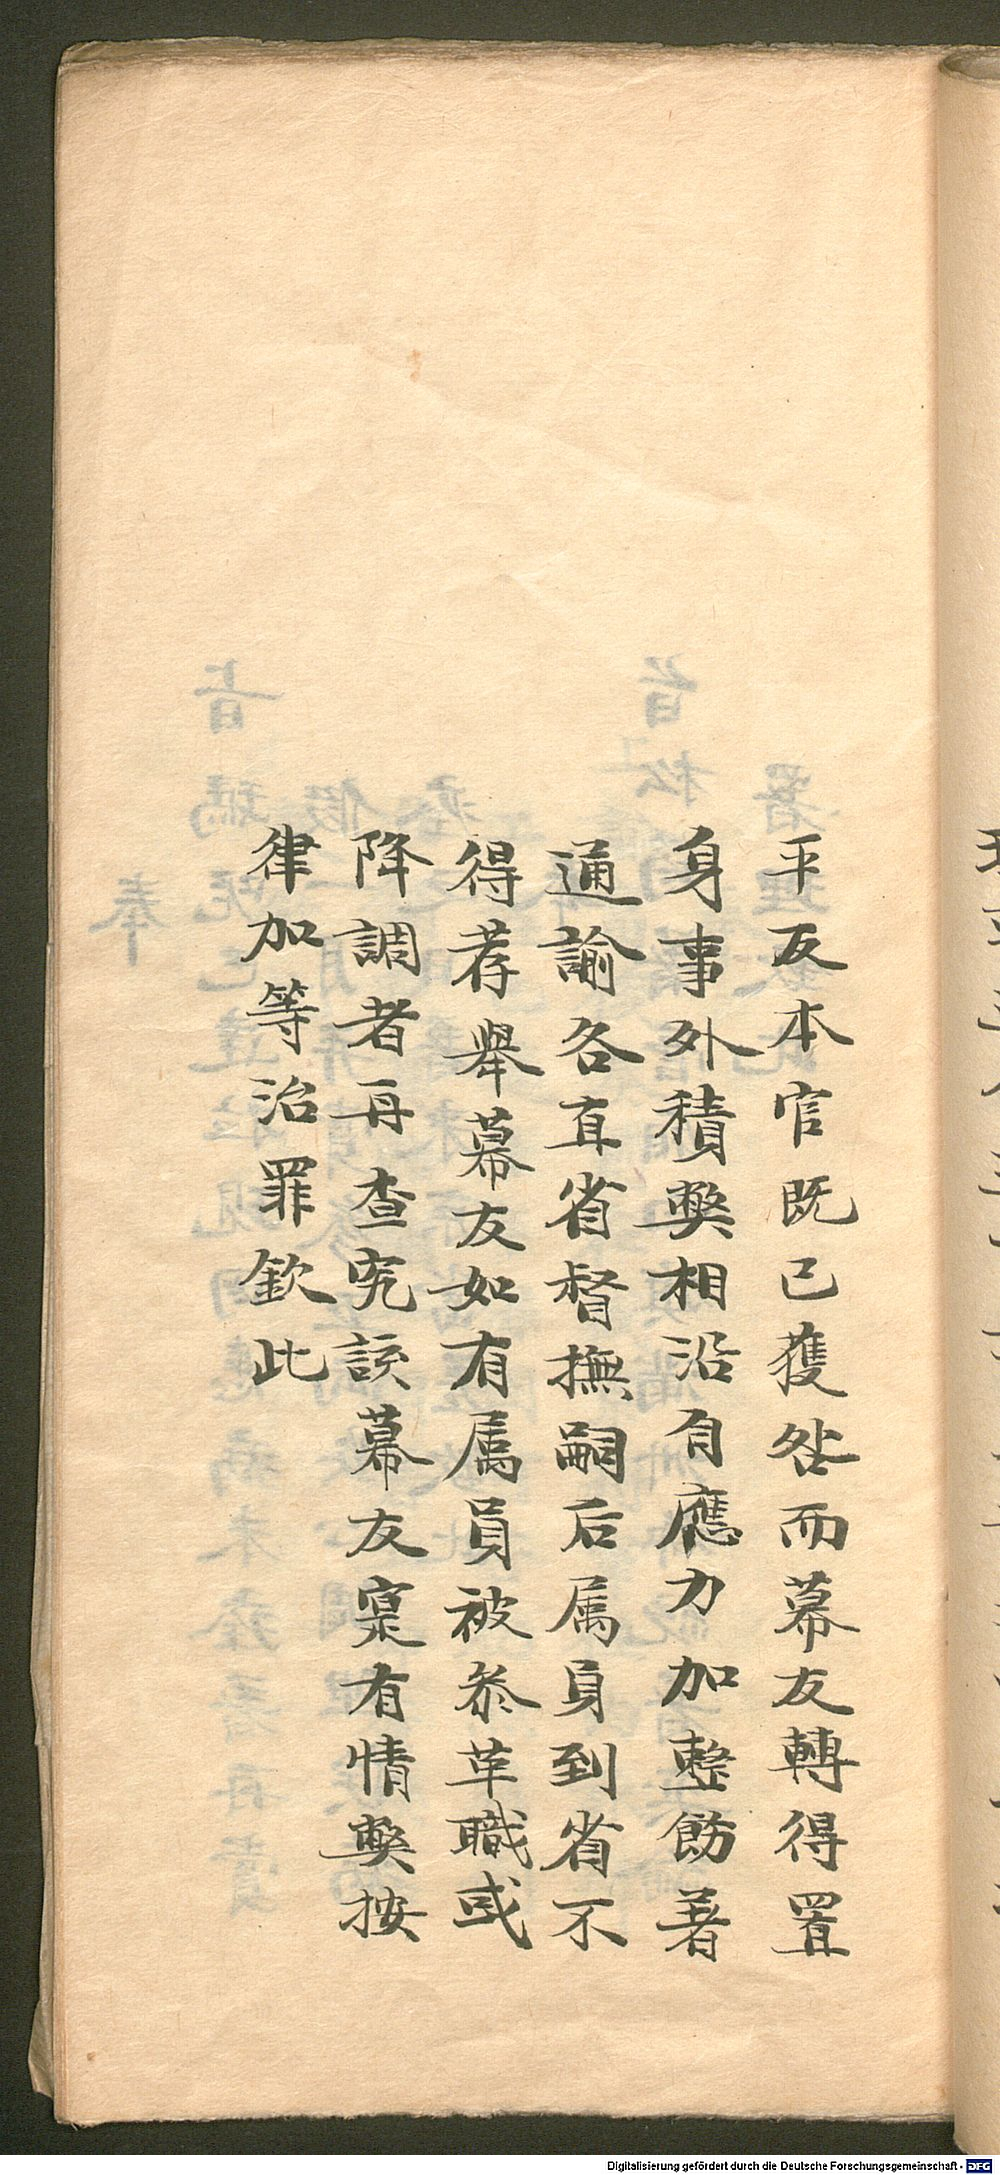 平反本官既已獲咎而幕友轉得置
身事外積獘相沿自應力加整飭著
通諭各直省督撫嗣后属員到省不
得荐舉幕友如有属員被叅革職或
降調者再查究該幕友寔有情獘按
律加等治罪欽此
Digitalisierung gefördert durch die Deutsche Forschungsgemeinschaft - DFG